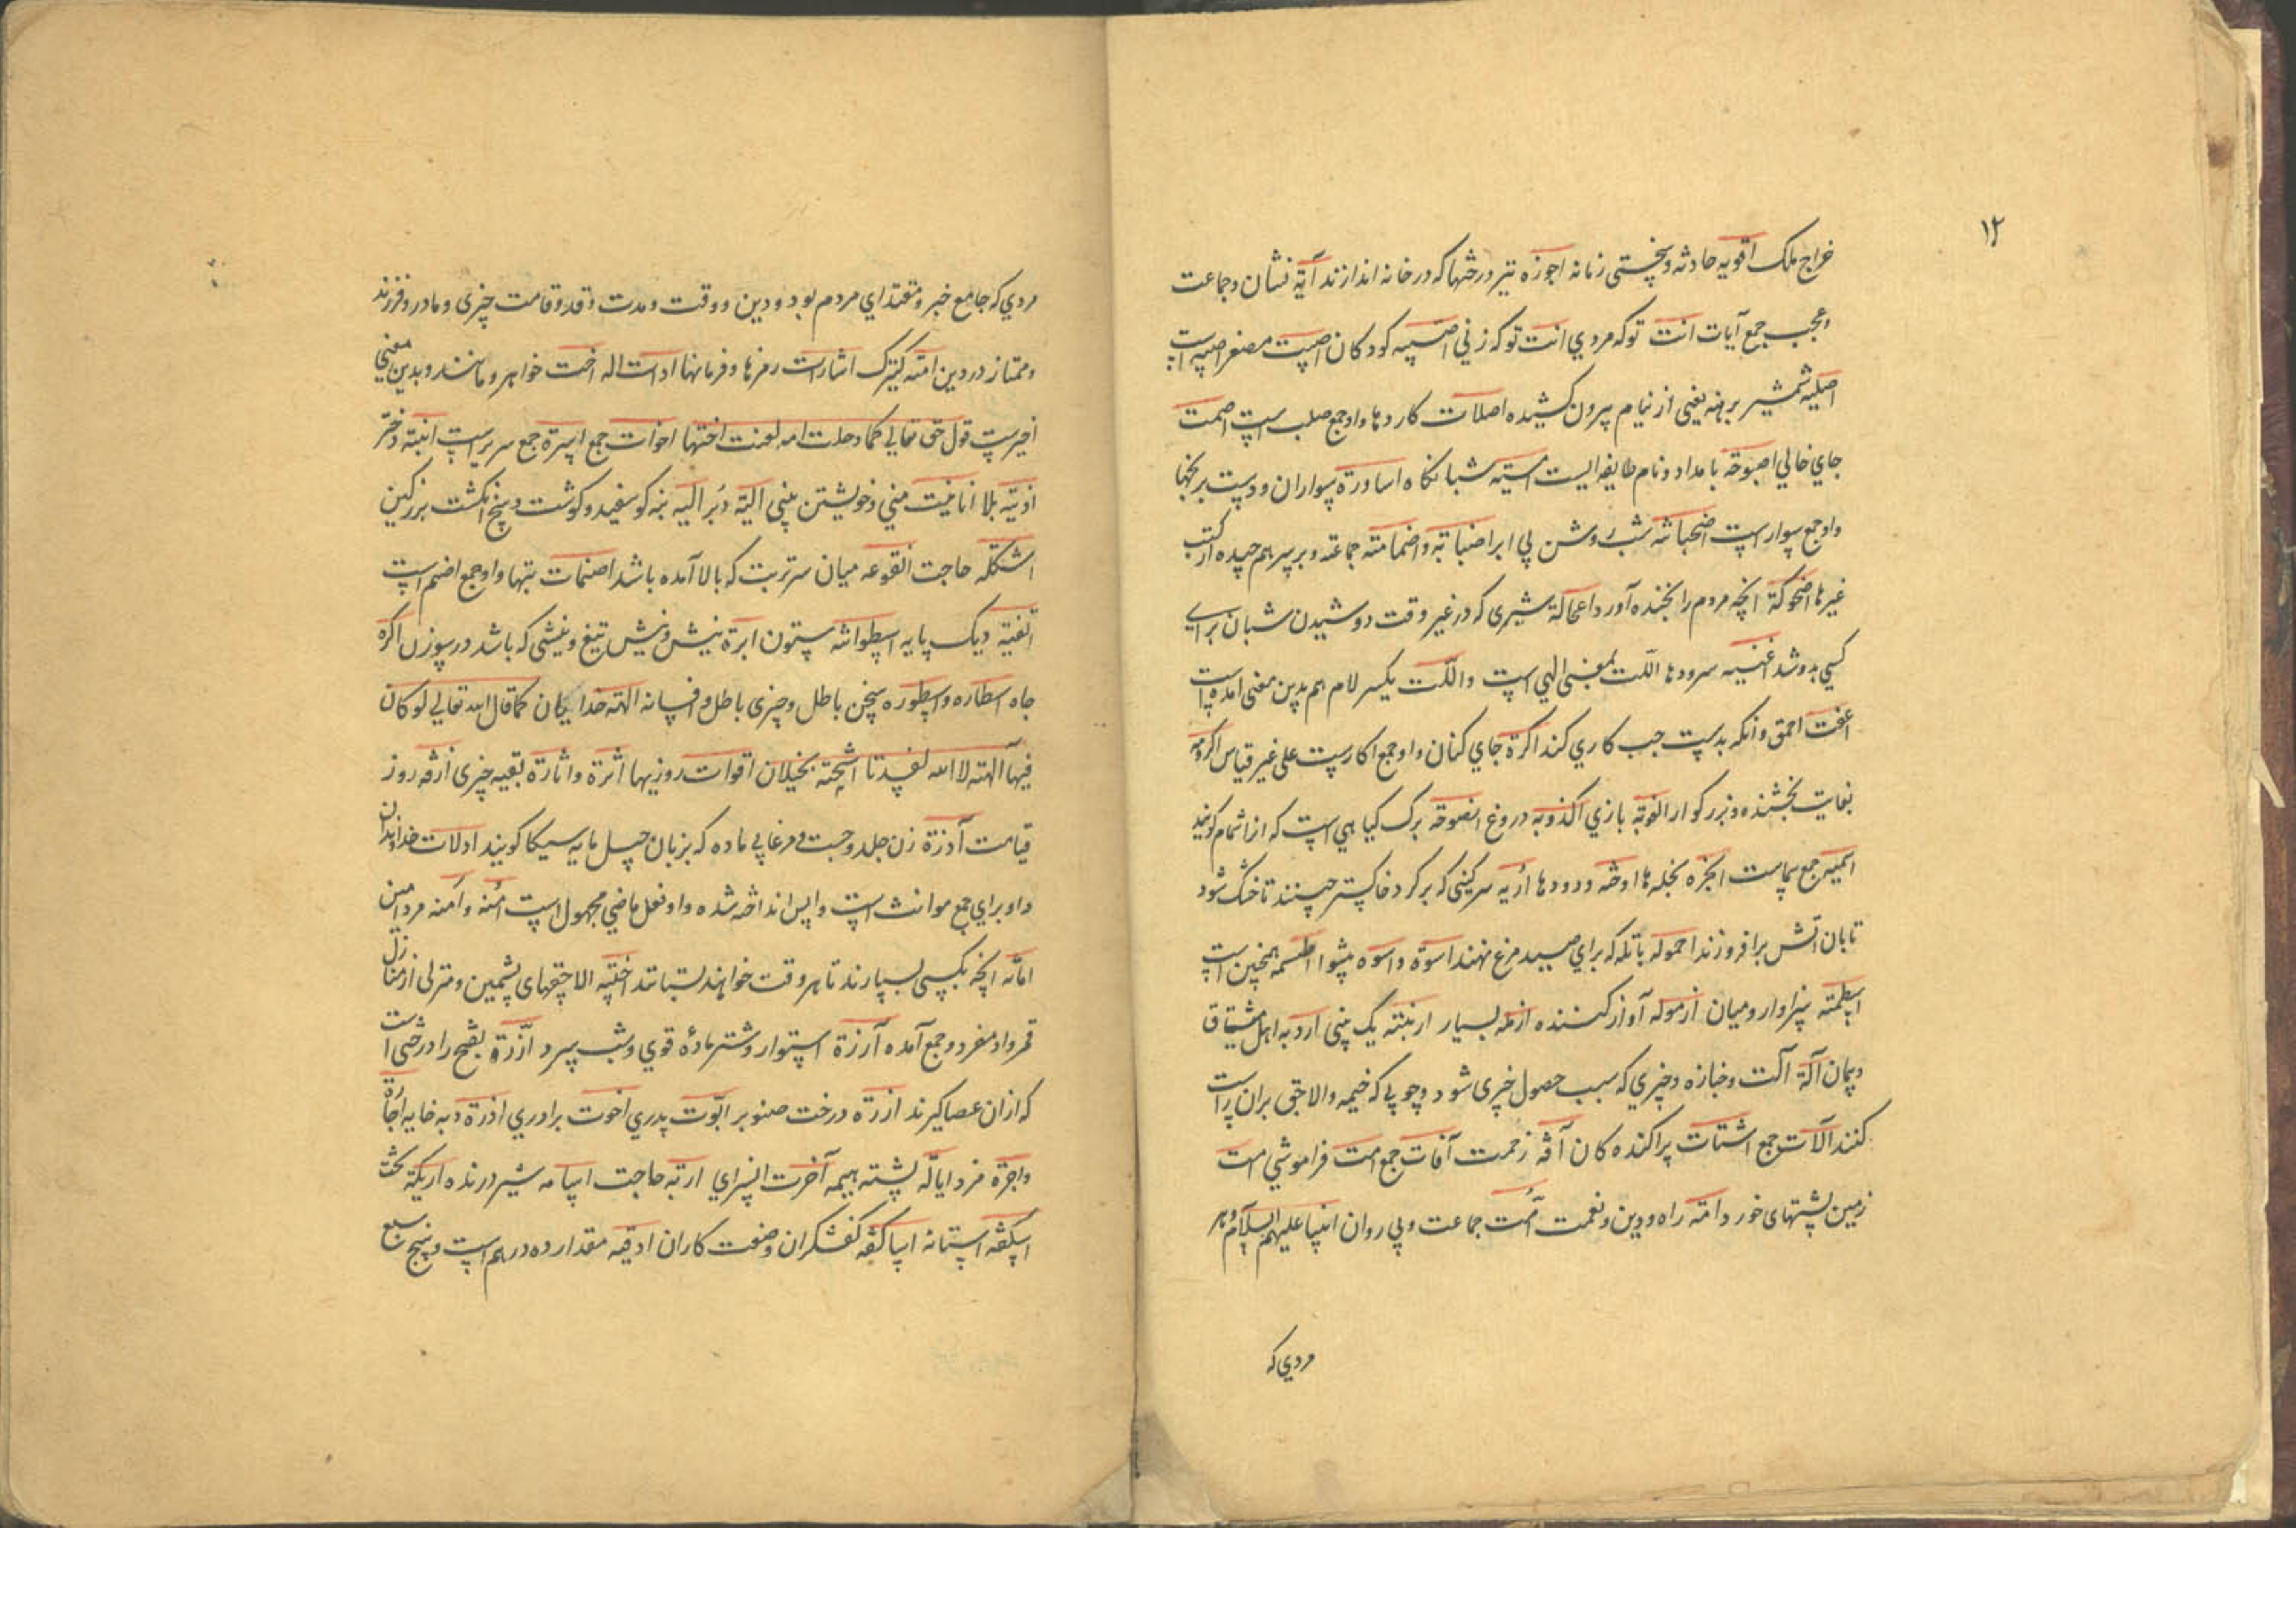 ۱۲
خراج ملک اقویه حادثه و سختی زمانه اجوزه تیر درختها که در خانه اندازند آیة نشان و جماعت
و عجب جمع آیات انت تو که مردي انت تو که زني اصبیه کودکان اصیبت مصغر اصبیه است
اصلیه شمشیر برهنه یعنی از نیام بیرون کشیده اصلات کاردها و او جمع صلب است اصمت
جاي خالي اصبوحه بامداد و نام طایفه ایست امسیه شبانکاه اساورة سواران و دست برنجها
و او جمع سوار است اضحیانه شب روشن بي ابر اضبابه و اضمامته جماعة و بر سر هم چیده از کتب
غیرها اضحوکة انچه مردم را بخنده آورد اعجالة شیری که در غیر وقت دوشیدن شبان براي
کسي بدوشد اغنیه سرودها الّت بمعنی الهي است والّت بکسر لام هم بدین معنی آمده است
اعفت احمق و انکه بدست چپ کاري کند اکرة جاي کنان و او جمع اکار است علی غیر قیاس اکرومه
بغایت بخشنده و بزرکوار العوبة بازي اکذوبه دروغ انصوحه برک کیاهي است که از اشمام کویند
اسمیه جمع سماست انجزه نجله ها اوخه و درودها اریه سرکینی که بر کرد خاکستر چینند تا خشک شود
تابان اتش برافروزند احموله باتله که براي صید مرغ نهند اسوة و اسوه پیشوا اطسمه همچنین است
اسطمته سزاوار و میان ازموله آواز کننده ازمله بسیار ارنبته یک بینی اردبه اهل مشتاق
و پیمان آلة آلت و جنازه و چیزي که سبب حصول چیزی شود و چوبي که خیمه والاجتی بران راست
کنند آلات جمع اشتات پراکنده کان آفه زحمت آفات جمع امت فراموشي امت
زمین پشتهای خورد امّه راه و دین و نعمت امّت جماعت و پي روان انبیا علیهم السلام و هر
مردي که
مردي که جامع خیر و مقتداي مردم بود و دین و وقت و مدت و قد و قامت چیزی و مادر و فرزند
و ممتاز در دین امته کنیزک اشارات رمزها و فرمانها ادات اله اخت خواهر و مانند و بدین معنی
اخیر است قول حق تعالي کلما دخلت امه لعنت اختها اخوات جمع اسرة جمع سریر است ابنته دختر
اذیّه بلا انانیت مني و خویشتن بینی الیّة دُبر الیه بنه کوسفید و کوشت بیخ انکشت بزرکین
اشکله حاجت انقوعه میان سر ترید که بالا آمده باشد اصنمات بتها و او جمع اضم است
اثفیّه دیک پایه اسطوانه ستون ابرة نیش و نیش تیغ و نیشی که باشد در سوزن اکره
جاه اسطاره و اسطوره سخن باطل و چیزی باطل و افسانه الهته خدایکان کما قال الله تعالي لو کان
فیها آلهته لا الله لفسدتا اشحّته بخیلان اقوات روزیها اثرة و اثارة بقیه چیزی ازفه روز
قیامت آدزة زن جلد و چست و مرغابي ماده که بزبان جبل مایه سیکا کویند اولات خداوندان
و او براي جمع مونث است و اپس انداخه شده و او فعل ماضي مجهول است امنه و آمنه مرد امین
امانه انچه بکسی بسپارند تا هر وقت خواهند بستانند اخبیّه الاچقهای پشمین و منزلی از منازل
قمر و او مفرد و جمع آمده آرزة استوار و شتر مادهٔ قوي و شب سرد ارّزة بفتح را درختی است
که ازان عصا کیرند ارزة درخت صنوبر ابوّت پدري اخوت برادري ادرة دبه خایه اجارة
و اجرة مزد ایالّه پشته هیمه آخرت انسراي اربّه حاجت اسامه شیر درنده اریکة تخت
اسکفه استانه اساکفه کفشکران و صنعت کاران اوقیه مقدار ده درهم است و پنج سبع